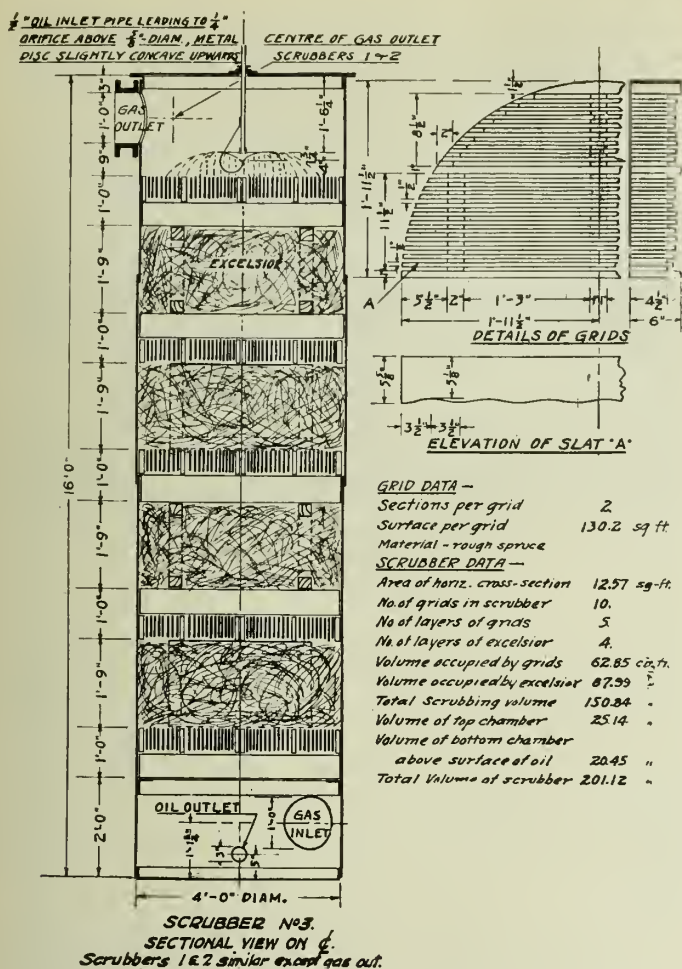 ½" OIL INLET PIPE LEADING TO ¼"
ORIFICE ABOVE ⅝"-DIAM., METAL
DISC SLIGHTLY CONCAVE UPWARDS
CENTRE OF GAS OUTLET
SCRUBBERS 1 & 2
GAS
OUTLET
3"
1'-0"
9"
1'-0"
1'-9"
1'-0"
1'-9"
1'-0"
1'-9"
1'-0"
1'-9"
1'-0"
2'-0"
16'0"
1'-6¼"
4"
EXCELSIOR
OIL OUTLET
GAS
INLET
1'-0"
3"
5"
4'-0" DIAM.
SCRUBBER No3.
SECTIONAL VIEW ON ℄.
Scrubbers 1 & 2 similar except gas out.
1½"
8½"
2"
1'-11½"
11½"
1"
A
5½"
2"
1'-3"
1"
4½"
1'-11½"
6"
DETAILS OF GRIDS
5⅝"
5⅛"
3½"
3½"
ELEVATION OF SLAT "A"
GRID DATA —
Sections per grid 2
Surface per grid 130.2 sq ft.
Material - rough spruce
SCRUBBER DATA —
Area of horiz. cross-section 12.57 sq-ft.
No. of grids in scrubber 10.
No of layers of grids 5.
No. of layers of excelsior 4.
Volume occupied by grids 62.85 cu. ft.
Volume occupied by excelsior 87.99 "
Total Scrubbing volume 150.84 "
Volume of top chamber 25.14 "
Volume of bottom chamber
above surface of oil 20.45 "
Total Volume of scrubber 201.12 "